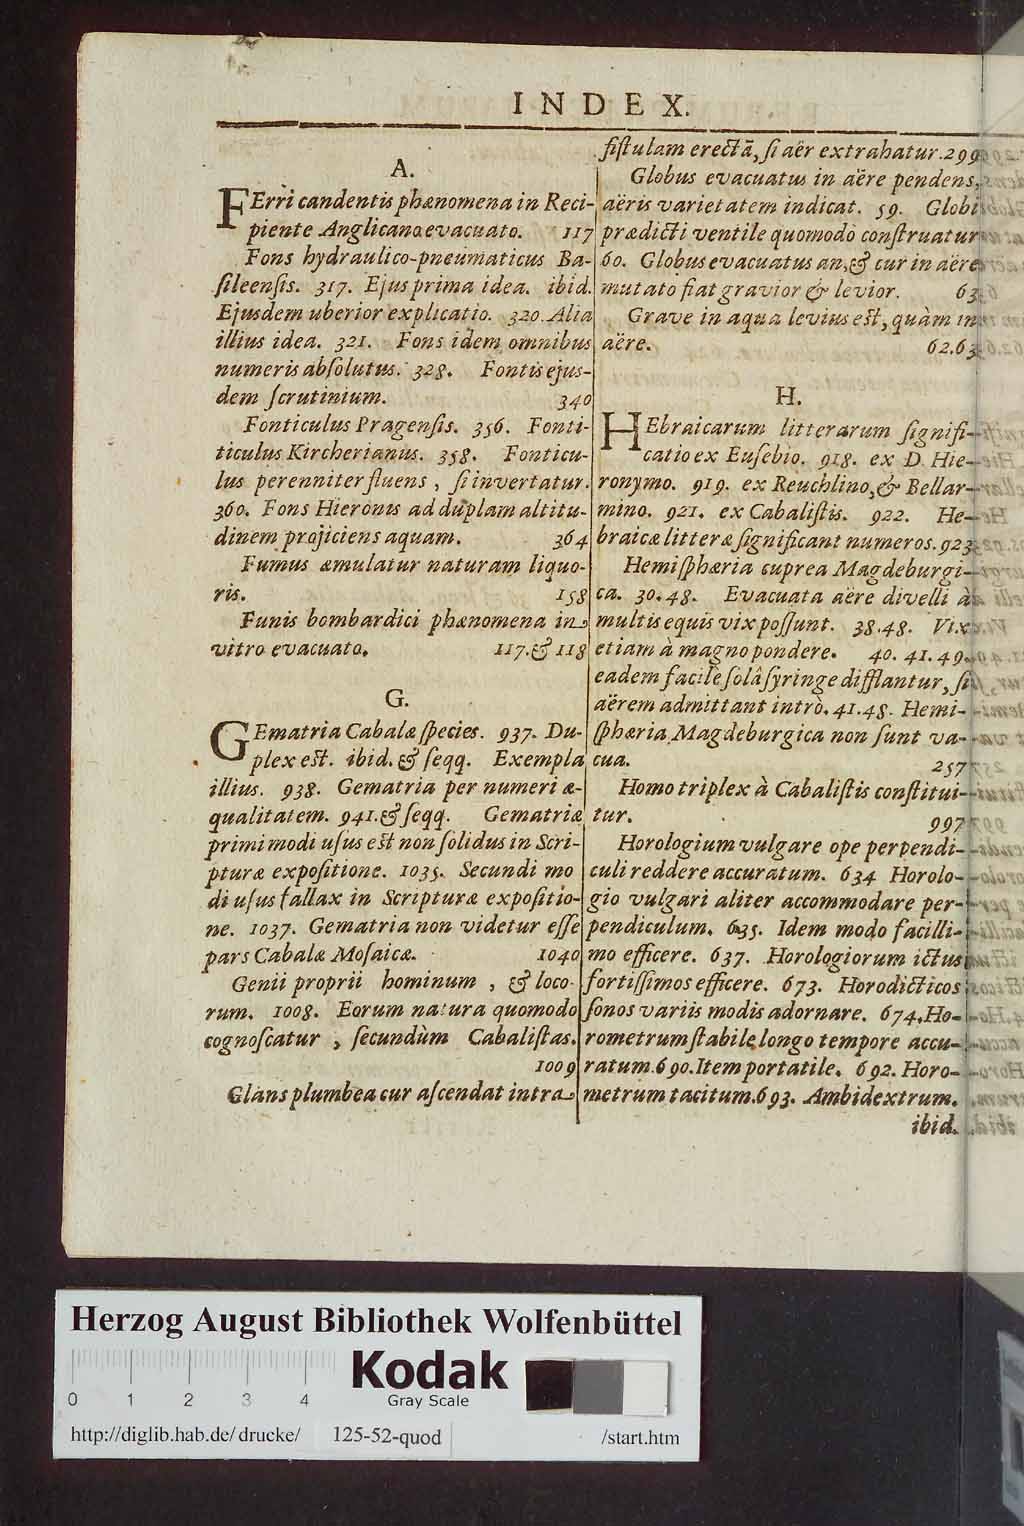 INDEX.
A.
FErri candentis phænomena in Reci-
piente Anglicano evacuato. 117
Fons hydraulico-pneumaticus Ba-
ſileenſis. 317. Ejus prima idea. ibid.
Ejusdem uberior explicatio. 320. Alia
illius idea. 321. Fons idem omnibus
numeris abſolutus. 328. Fontis ejus-
dem ſcrutinium. 340
Fonticulus Pragenſis. 356. Fonti-
ticulus Kircherianus. 358. Fonticu-
lus perenniter fluens, ſi invertatur.
360. Fons Hieronis ad duplam altitu-
dinem projiciens aquam. 364
Fumus æmulatur naturam liquo-
ris. 158
Funis bombardici phænomena in
vitro evacuato. 117. & 118
G.
GEmatria Cabalæ ſpecies. 937. Du-
plex est. ibid. & ſeqq. Exempla
illius. 938. Gematria per numeri æ-
qualitatem. 941. & ſeqq. Gematriæ
primi modi uſus est non ſolidus in Scri-
pturæ expoſitione. 1035. Secundi mo
di uſus fallax in Scripturæ expoſitio-
ne. 1037. Gematria non videtur eſſe
pars Cabalæ Moſaicæ. 1040
Genii proprii hominum, & loco-
rum. 1008. Eorum natura quomodo
cognoſcatur, ſecundùm Cabaliſtas.
1009
Glans plumbea cur aſcendat intra
fiſtulam erectã, ſi aër extrahatur. 299
Globus evacuatus in aëre pendens,
aëris varietatem indicat. 59. Globi
prædicti ventile quomodò conſtruatur
60. Globus evacuatus an, & cur in aëre
mutato fiat gravior & levior. 63
Grave in aqua levius eſt, quàm in
aëre. 62.63
H.
HEbraicarum litterarum ſignifi-
catio ex Euſebio. 918. ex D. Hie-
ronymo. 919. ex Reuchlino, & Bellar-
mino. 921. ex Cabaliſtis. 922. He-
braicæ litteræ ſignificant numeros. 923
Hemiſphæria cuprea Magdeburgi-
ca. 30. 48. Evacuata aëre divelli à
multis equis vix poſſunt. 38. 48. Vix
etiam à magno pondere. 40. 41. 49.
eadem facilè ſolâ ſyringe difflantur, ſi
aërem admittant intrò. 41. 48. Hemi-
ſphæria Magdeburgica non ſunt va-
cua. 257
Homo triplex à Cabaliſtis conſtitui-
tur. 997
Horologium vulgare ope perpendi-
culi reddere accuratum. 634 Horolo-
gio vulgari aliter accommodare per-
pendiculum. 635. Idem modo facilli-
mo efficere. 637. Horologiorum ictus
fortiſſimos efficere. 673. Horodicticos
ſonos variis modis adornare. 674. Ho-
rometrum ſtabile longo tempore accu-
ratum. 690. Item portatile. 692. Horo-
metrum tacitum. 693. Ambidextrum.
ibid.
Herzog August Bibliothek Wolfenbüttel
Kodak
Gray Scale
0 1 2 3 4
http://diglib.hab.de/drucke/ 125-52-quod /start.htm